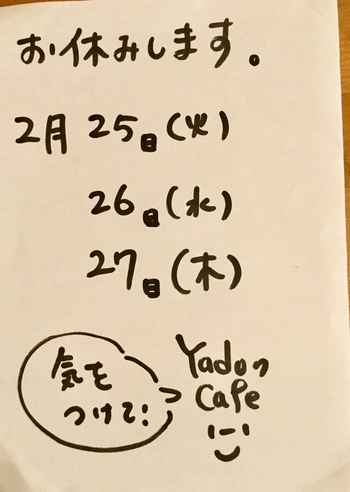 お休みします。
2月 25日(火)
26日(水)
27日(木)
気を
つけて!
Yadon
Cafe